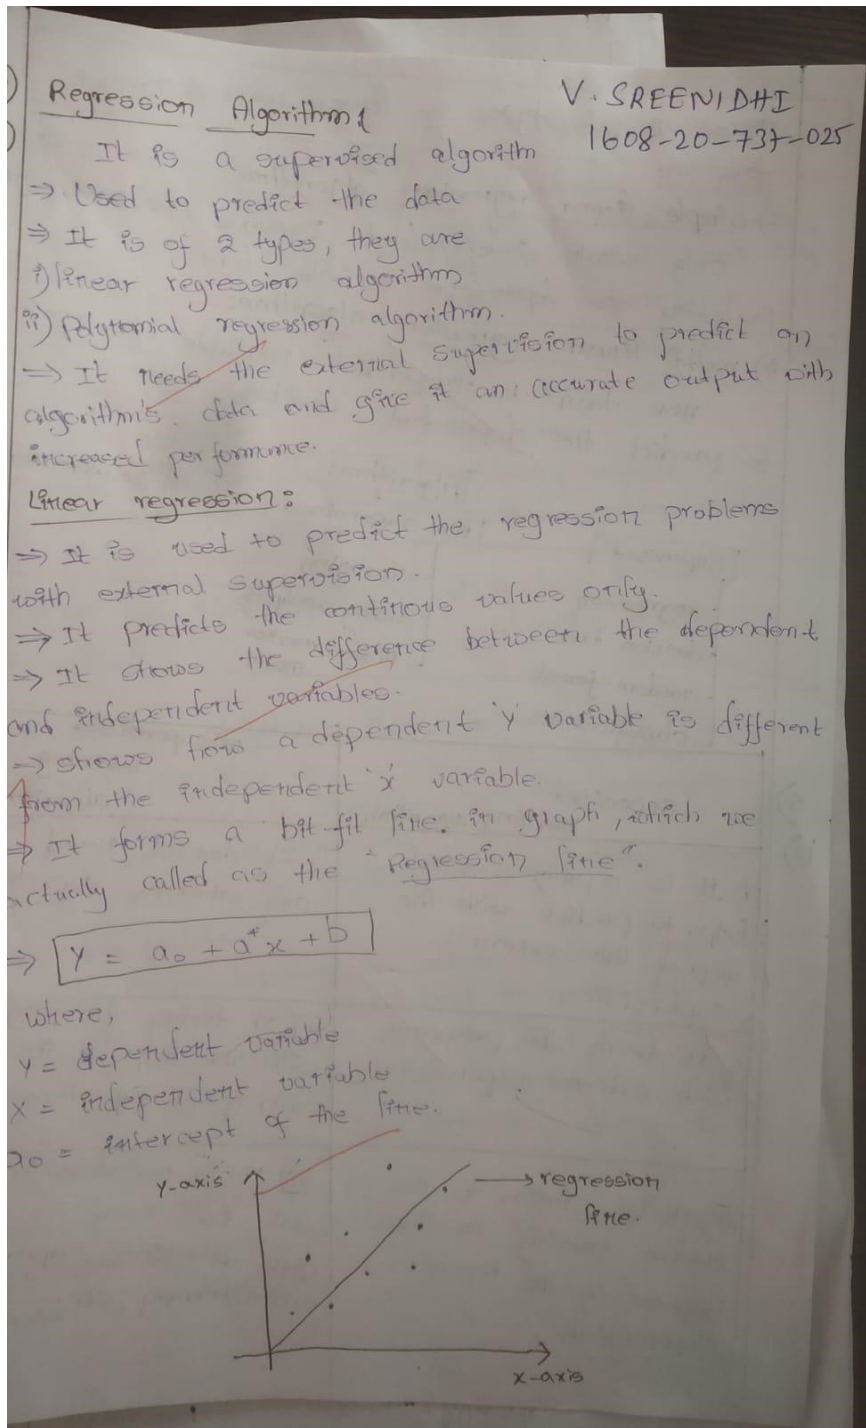 Regression Algorithm:
V. SREENIDHI
1608-20-737-025
It is a supervised algorithm
⇒ Used to predict the data
⇒ It is of 2 types, they are
i) linear regression algorithm
ii) Polynomial regression algorithm.
⇒ It needs the external supervision to predict an
algorithm's data and give it an accurate output with
increased performance.
Linear regression:
⇒ It is used to predict the regression problems
with external supervision.
⇒ It predicts the continous values only.
⇒ It shows the difference between the dependent
and independent variables.
→ shows how a dependent 'y' variable is different
from the independent 'x' variable.
⇒ It forms a bit fit line in graph, which we
actually called as the "Regression line".
⇒ Y = a₀ + a*x + b
where,
Y = dependent variable
X = independent variable
a₀ = intercept of the line.
y-axis
→ regression
line.
x-axis